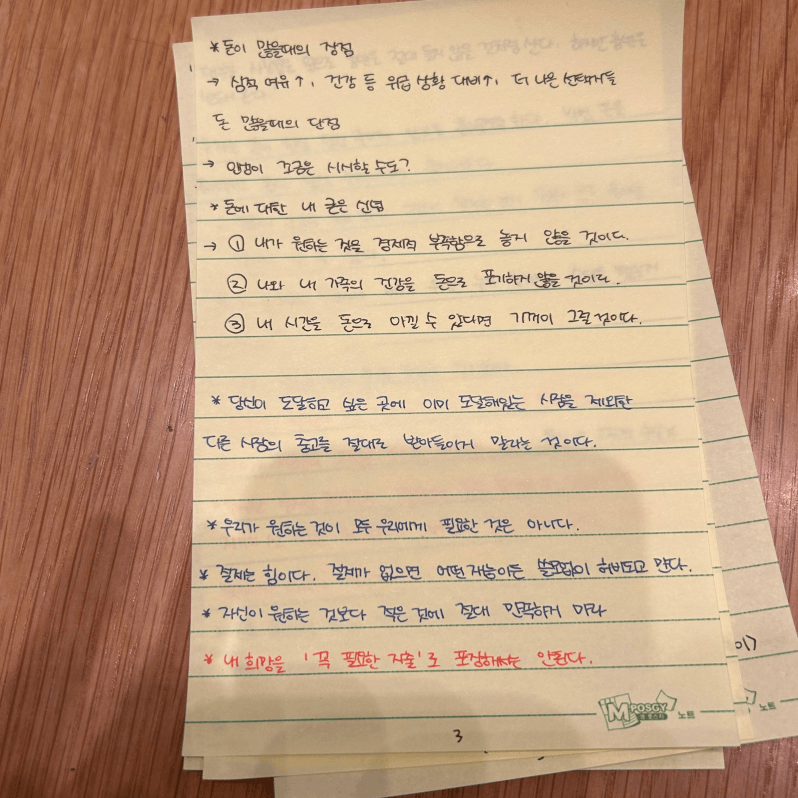 * 돈이 많을때의 장점
→ 삶의 여유↑, 건강 등 위급 상황 대비↑, 더 나은 선택지들
돈 많을때의 단점
→ 인성이 조금은 시시할 수도?
* 돈에 대한 내 굳은 신념
→ ① 내가 원하는 것을 경제적 부족함으로 놓지 않을 것이다.
② 나와 내 가족의 건강을 돈으로 포기하지 않을 것이다.
③ 내 시간을 돈으로 아낄 수 있다면 기꺼이 그럴 것이다.
* 당신이 도달하고 싶은 곳에 이미 도달해있는 사람을 제외한
다른 사람의 충고를 절대로 받아들이지 말라는 것이다.
* 우리가 원하는 것이 모두 우리에게 필요한 것은 아니다.
* 절제는 힘이다. 절제가 없으면 어떤 재능이든 쓸모없이 허비되고 만다.
* 자신이 원하는 것보다 적은 것에 절대 만족하지 마라
* 내 희망을 '꼭 필요한 지출'로 포장해서는 안된다.
MPOSGY
노트
3